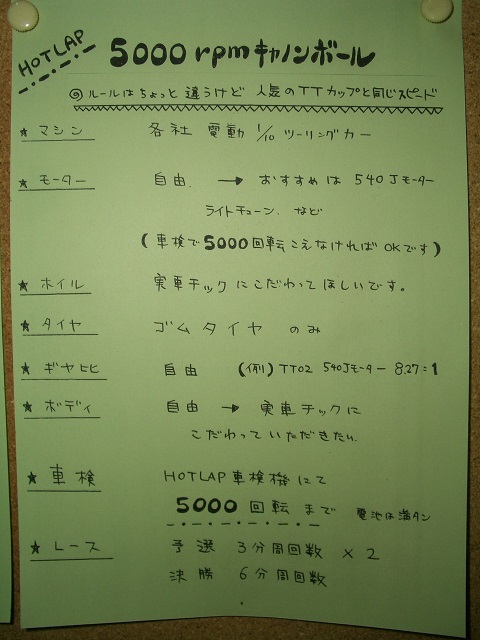 HOTLAP 5000rpm キャノンボール
◎ルールはちょっと違うけど 人気のTTカップと同じスピード
★マシン 各社 電動 1/10 ツーリングカー
★モーター 自由. → おすすめは 540Jモーター
ライトチューン. など
(車検で5000回転こえなければOKです)
★ホイル 実車チックにこだわってほしいです。
★タイヤ ゴムタイヤ のみ
★ギヤ比 自由 (例) TT02 540Jモーター 8.27:1
★ボディ 自由 → 実車チックに
こだわっていただきたい.
★車検 HOTLAP車検機にて
5000回転まで 電池は満タン
★レース 予選 3分周回数 × 2
決勝 6分周回数